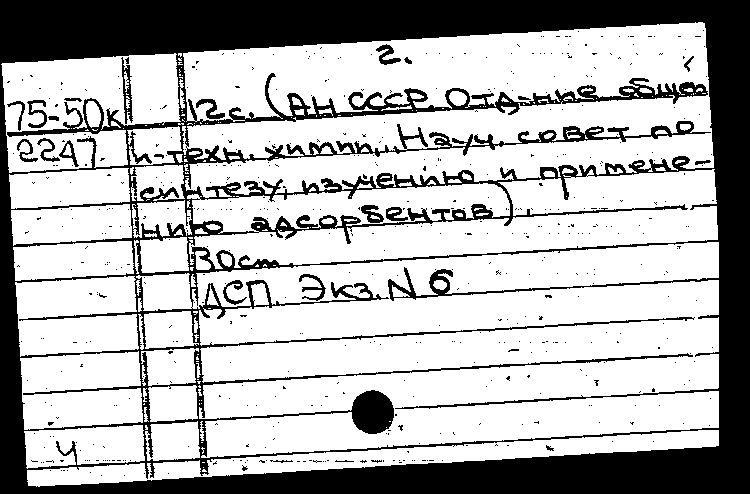 2.
75-50к 12с. (АН СССР. Отд-ние общей
2247 и техн. химии... Науч. совет по
синтезу, изучению и примене-
нию адсорбентов).
30см.
ДСП. Экз. N 6
Ч